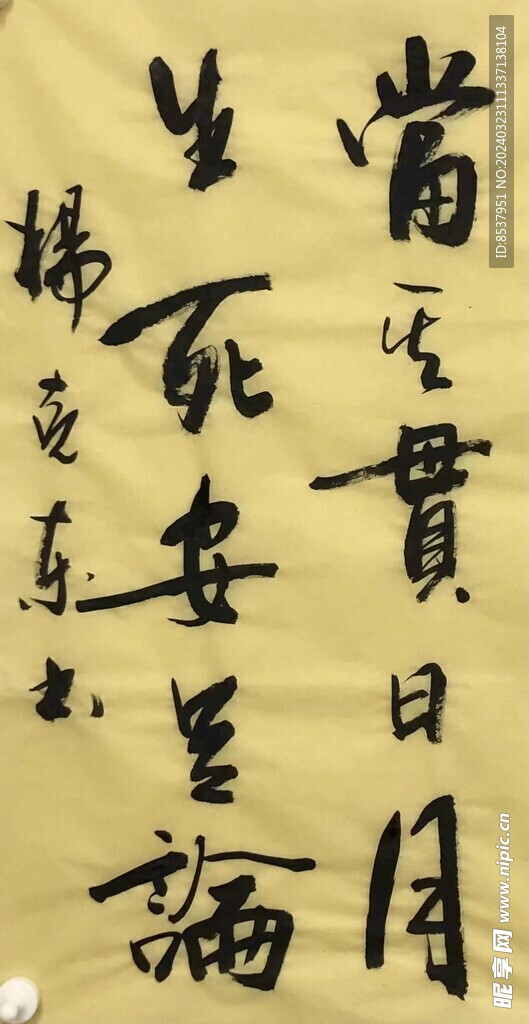 當其貫日月
生死安足論
楊克東书
ID:8537951 NO:20240323111337138104
昵享网 www.nipic.cn